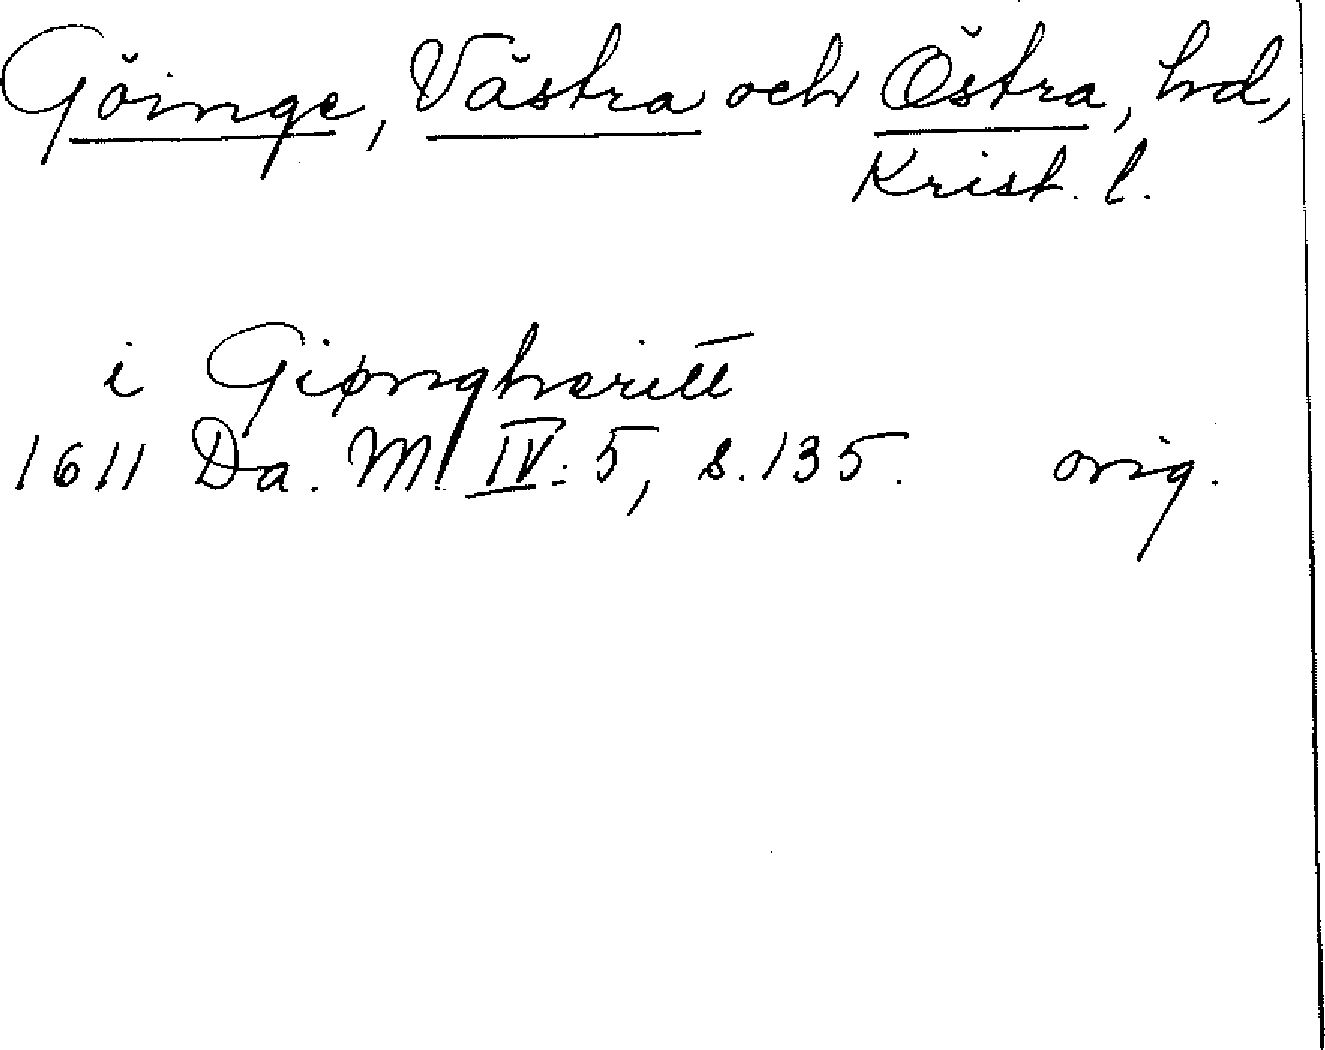 Göinge, Västra och Östra, hd,
Krist. l.
i Giønghæritt
1611 Da. M. IV: 5, s. 135. orig.